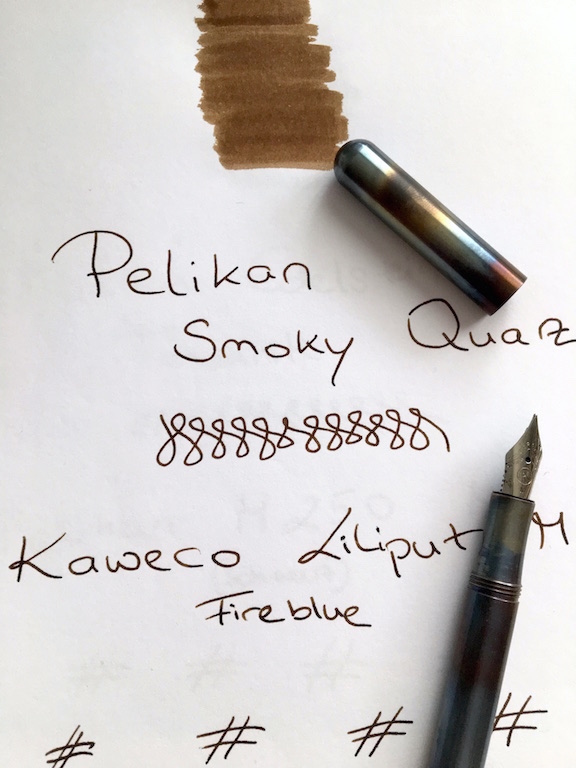 Pelikan
Smoky Quarz
Kaweco Liliput M
Fireblue
# # # #